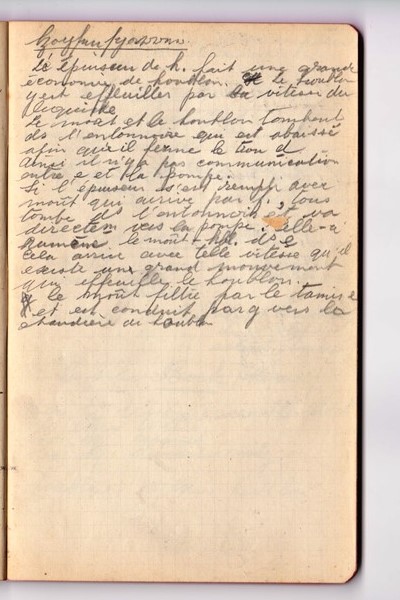 L'épuiseur de h. fait une grande
économie de houblon. le houblon
y est effeuiller par la vitesse du
liquide
Le moût et le houblon tombent
ds l'entonnoire qui est abaissé
afin qu'il ferme le trou d
Ainsi il n'y a pas communication
entre e et la pompe.
Si l'épuiseur s'est rempli avec
moût qui arrive par f, tous
tombe ds l'entonnoir et va
directem vers la pompe. Celle-ci
ramène le moût ds e
Cela arrive avec telle vitesse qu'il
existe un grand mouvement
qui effeuille le houblon.
le moût filtre par le tamis e
et est conduit par g vers la
chaudière de houbl